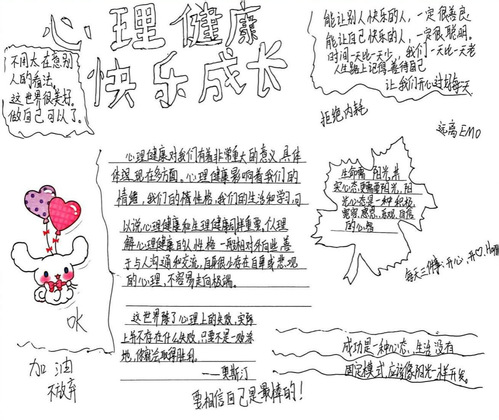 心理健康
快乐成长
不用太在意别
人的看法。
这世界很美好。
做自己可以了。
能让别人快乐的人，一定很善良
能让自己快乐的人，一定很聪明，
时间一天比一天少，我们一天比一天老
人生路上记得善待自己
让我们开心过好每天
拒绝内耗
远离EMO
心理健康对我们有着非常重大的意义，具体
体现在多方面，心理健康影响着我们的
情绪，我们的情性格，我们的生活和学习间
以说心理健康和生理健康同样重要，个人理
解心理健康的人性格一般相对外向些，善
于与人沟通和交流，自身很少存在自卑或悲观
的心理，不容易走向极端。
这世界除了心理上的失败，实际
上并不存在什么失败，只要不是一败涂
地，你就会取得胜利。
——奥斯汀
生命需
阳光，其
实心态更需要阳光，阳
光心态是一种积极、
宽容、感恩、乐观、自信
的心智
每天三件事：开心，开心，
OK
加油
不放弃
成功是一种心态，生活没有
固定模式，应该像阳光一样开朗。
要相信自己是最棒的！